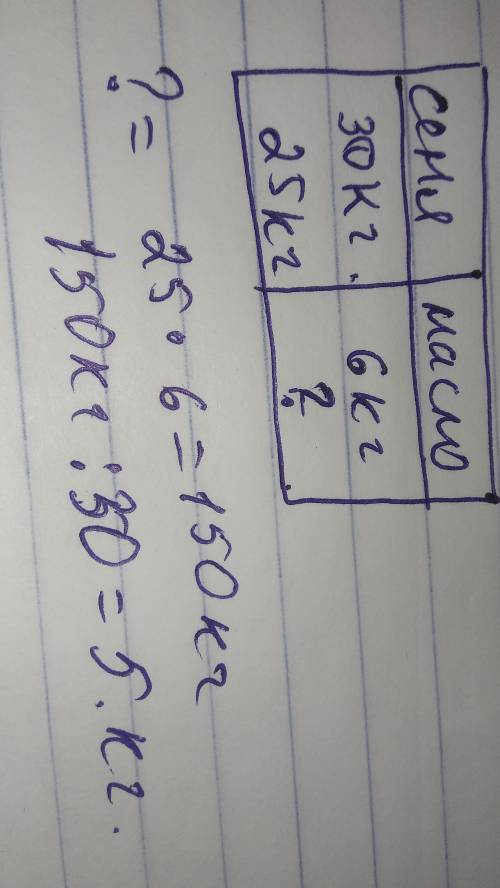 семя масло
30кг. 6кг
25кг ?
? = 25 · 6 = 150кг
150кг : 30 = 5.кг.